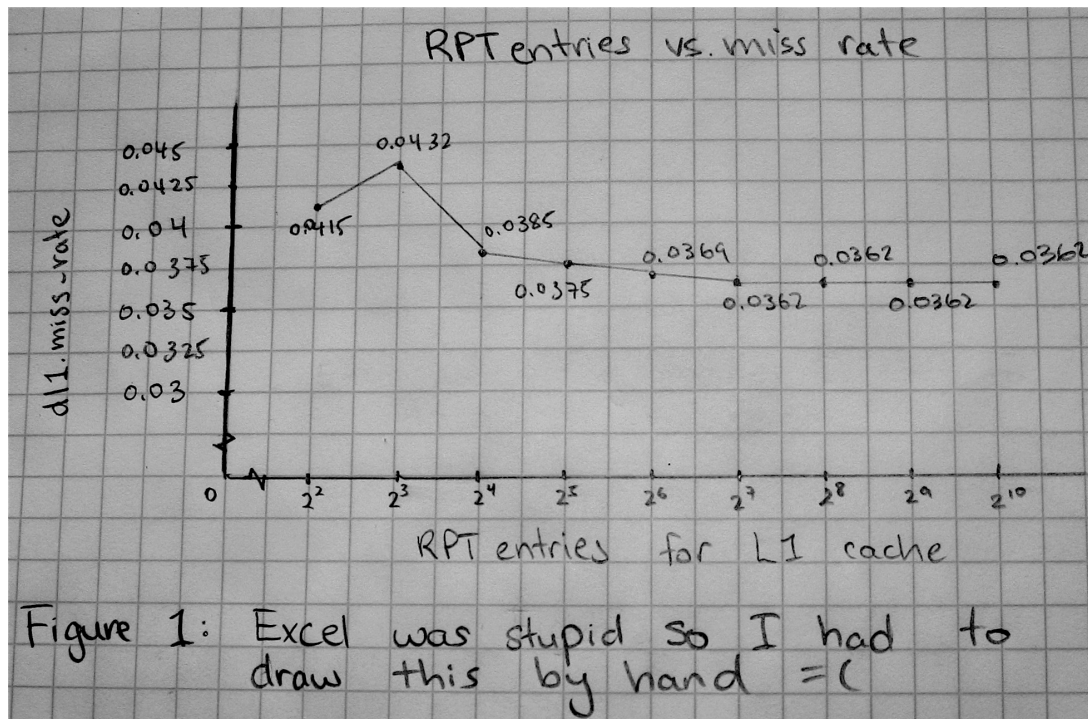 RPT entries vs. miss rate
0.0432
0.045
0.0425
0.04
0.0375
0.035
0.0325
0.03
dl1.miss_rate
0.0415
0.0385
0.0375
0.0369
0.0362
0.0362
0.0362
0.0362
0
2²
2³
2⁴
2⁵
2⁶
2⁷
2⁸
2⁹
2¹⁰
RPT entries for L1 cache
Figure 1: Excel was stupid so I had to
draw this by hand =(